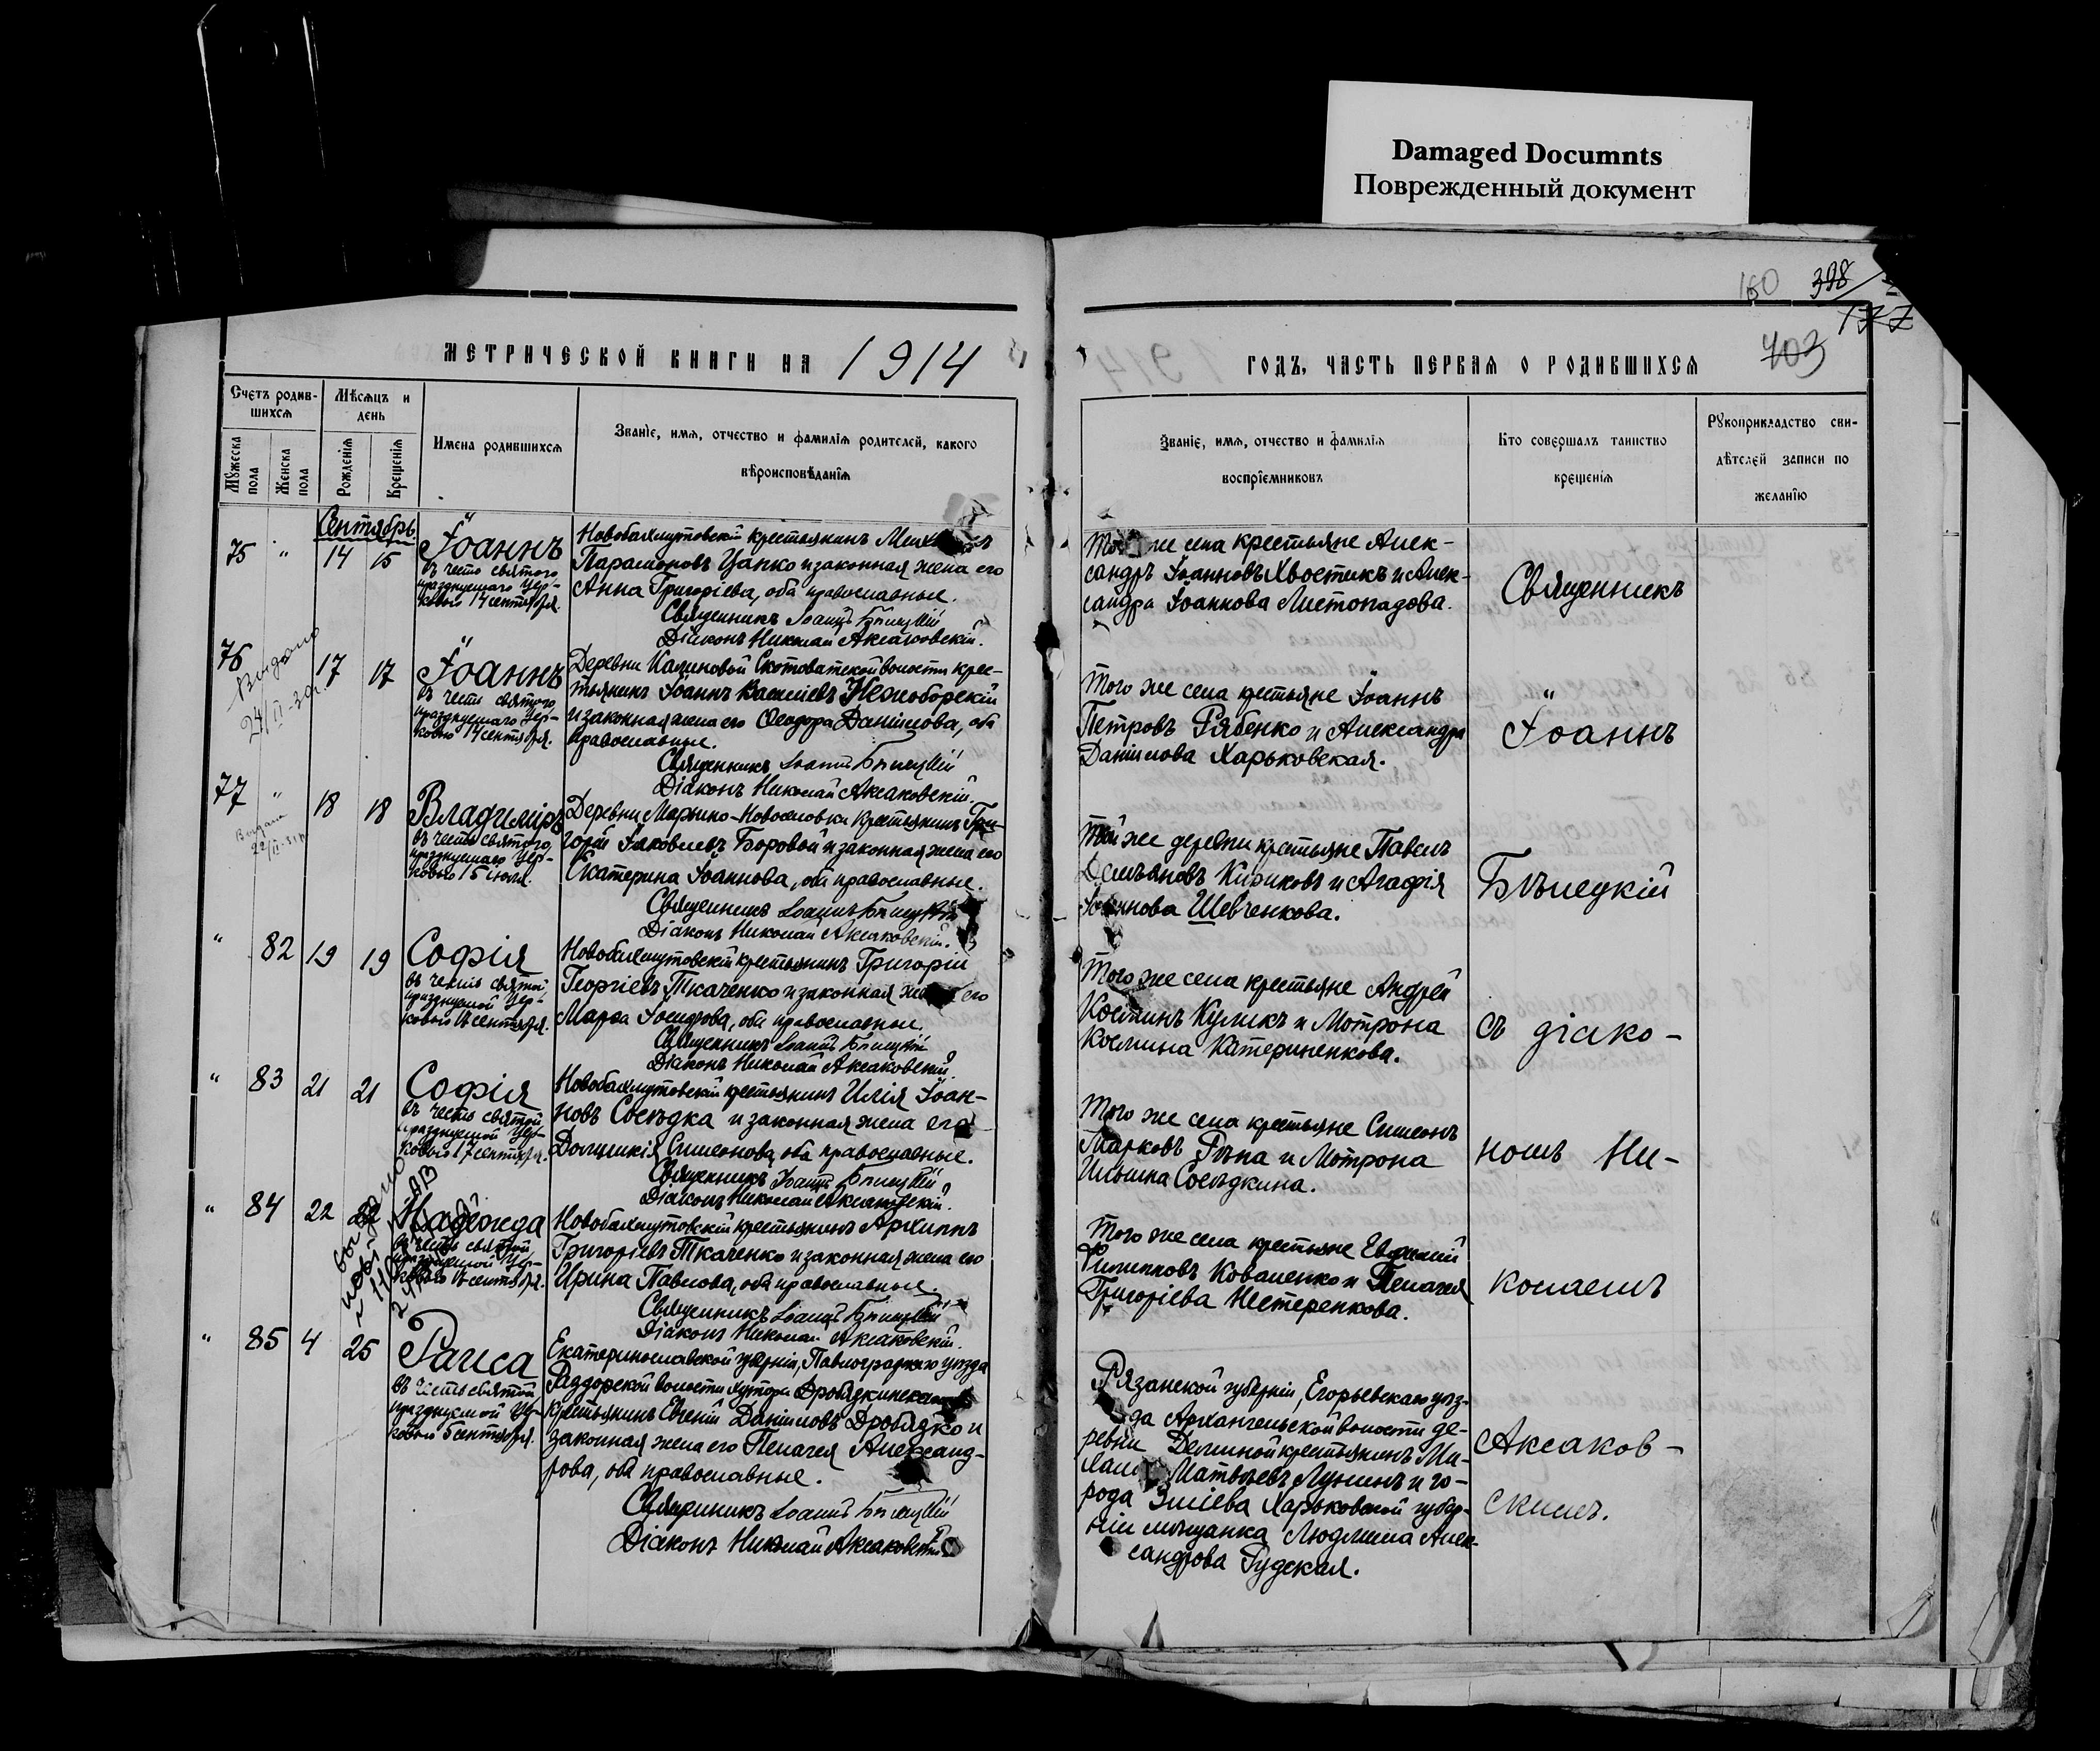 Damaged Documnts
Поврежденный документ
160 398
177
403
МЕТРИЧЕСКОЙ КНИГИ НА 1914
ГОДЪ, ЧАСТЬ ПЕРВАЯ О РОДИВШИХСЯ
Счетъ родив-
шихся
Мѣсяцъ и
день
Мужеска
пола
Женска
пола
Рожденія
Крещенія
Имена родившихся
Званіе, имя, отчество и фамилія родителей, какого
вѣроисповѣданія
Званіе, имя, отчество и фамилія
воспріемниковъ
Кто совершалъ таинство
крещенія
Рукоприкладство сви-
дѣтелей записи по
желанію
Сентябрь
75 " 14 15
Іоаннъ
въ честь святого
празднуемаго Цер-
ковью 14 сентября.
Новобахмутовскій крестьянинъ
Парамоновъ Цапко и законная жена его
Анна Григоріева, оба православные.
Священникъ Іоаннъ Бѣлецкій
Діаконъ Николай Аксаковскій.
же села крестьяне Алек-
сандръ Іоанновъ Хвостикъ и Алек-
сандра Іоаннова Листопадова.
76 " 17 17
Выдано
24/II-30г.
Іоаннъ
въ честь святого
празднуемаго Цер-
ковью 14 сентября.
Деревни Калиновой Скотоватской волости крес-
тьянинъ Іоаннъ Василіевъ Нежоборскій
и законная жена его Ѳеодора Даніилова, оба
православные.
Священникъ Іоаннъ Бѣлецкій
Діаконъ Николай Аксаковскій.
Того же села крестьяне Іоаннъ
Петровъ Рябенко и Александра
Даніилова Харьковская.
77 " 18 18
Выдана
Владиміръ
въ честь святого,
празднуемаго Цер-
ковью 15 іюля.
Деревни Марьино-Новоселовки крестьянинъ Гри-
горій Іаковлевъ Боровой и законная жена его
Екатерина Іоаннова, оба православные.
Священникъ Іоаннъ Бѣлецкій
Діаконъ Николай Аксаковскій.
Той же деревни крестьяне Павелъ
Демьяновъ Кириковъ и Агафія
Іоаннова Шевченкова.
" 82 19 19
Софія
въ честь святой
празднуемой Цер-
ковью 17 сентября.
Новобахмутовскій крестьянинъ Григорій
Георгіевъ Ткаченко и законная жена его
Марѳа Іосифова, оба православные.
Священникъ Іоаннъ Бѣлецкій
Діаконъ Николай Аксаковскій.
Того же села крестьяне Андрей
Косминъ Куликъ и Мотрона
Космина Катериненкова.
" 83 21 21
Софія
въ честь святой
празднуемой Цер-
ковью 17 сентября.
Новобахмутовскій крестьянинъ Илія Іоан-
новъ Сосѣдка и законная жена его
Домникія Симеонова, оба православные.
Священникъ Іоаннъ Бѣлецкій
Діаконъ Николай Аксаковскій.
Того же села крестьяне Симеонъ
Марковъ Рѣпа и Мотрона
Ильина Сосѣдкина.
" 84 22 22
Надежда
въ честь святой
празднуемой Цер-
ковью 17 сентября.
Новобахмутовскій крестьянинъ Архиппъ
Григоріевъ Ткаченко и законная жена его
Ирина Павлова, оба православные.
Священникъ Іоаннъ Бѣлецкій
Діаконъ Николай Аксаковскій.
Того же села крестьяне Евфимій
Филипповъ Коваленко и Пелагея
Григоріева Нестеренкова.
" 85 4 25
Раиса
въ честь святой
празднуемой Цер-
ковью 5 сентября.
Екатеринославской губерніи, Павлоградскаго уѣзда
Раздорской волости хутора
крестьянинъ Евгеній Даніиловъ Дробязко и
законная жена его Пелагея Александ-
рова, оба православные.
Священникъ Іоаннъ Бѣлецкій
Діаконъ Николай Аксаковскій
Рязанской губерніи, Егорьевскаго уѣз-
да Архангельской волости де-
ревни крестьянинъ Ми-
хаилъ Матвѣевъ Лунинъ и го-
рода Зміева Харьковской губер-
ніи мѣщанка Людмила Алек-
сандрова Рудская.
Священникъ
Іоаннъ
Бѣлецкій
съ діако-
номъ Ни-
колаемъ
Аксаков-
скимъ.